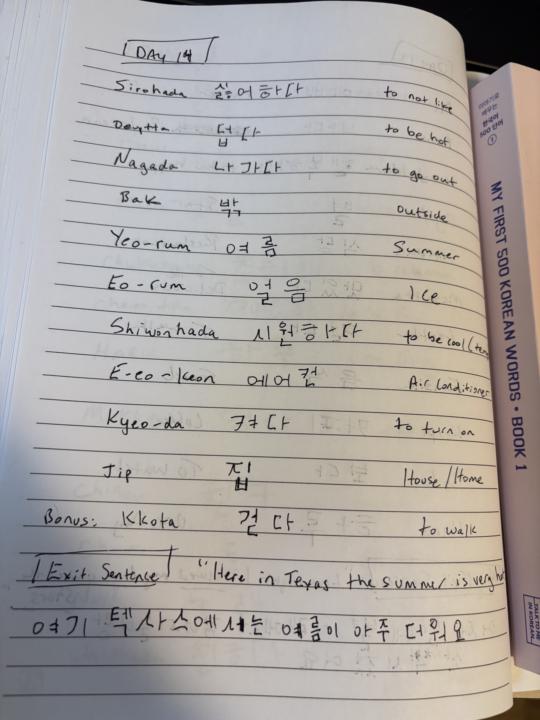 DAY 14
Sirohada 싫어하다 to not like
Deoptta 덥다 to be hot
Nagada 나가다 to go out
Bak 밖 outside
Yeo-rum 여름 Summer
Eo-rum 얼음 Ice
Shiwonhada 시원하다 to be cool (tem
E-eo-keon 에어컨 Air conditioner
Kyeo-da 켜다 to turn on
Jip 집 House/Home
Bonus: Kkota 걷다 to walk
Exit Sentence "Here in Texas the summer is very hot
여기 텍사스에서는 여름이 아주 더워요
이야기로
배우는
한국어
500 단어
①
MY FIRST 500 KOREAN WORDS • BOOK 1
TALK TO ME
IN KOREAN